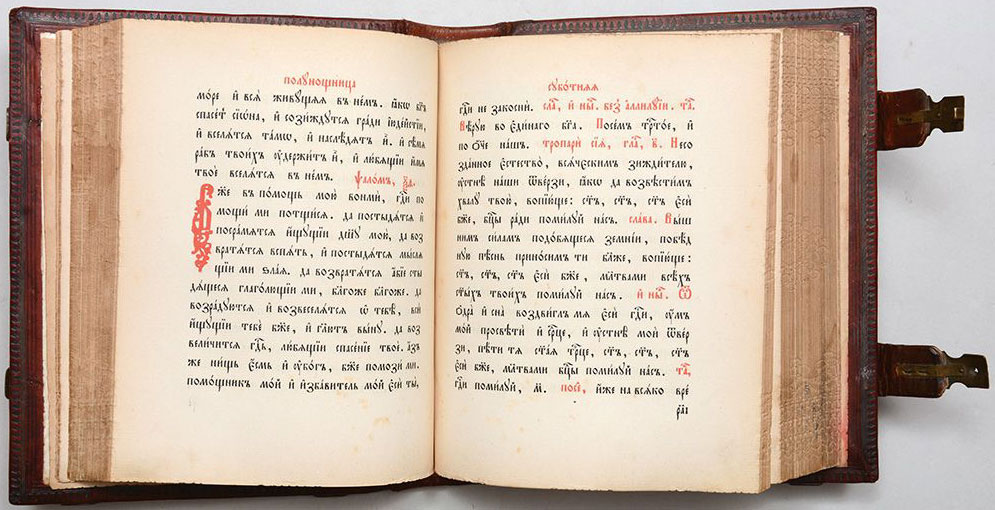 полꙋнощница
мо́ре и҆ всѧ̑ живꙋ́щаѧ въ не́мъ. ꙗ҆́кѡ бг҃ъ
спасе́тъ сїѡ́на, и҆ сози́ждꙋтсѧ гра́ди їюде́йстїи,
и҆ вселѧ́тсѧ та́мѡ, и҆ наслѣ́дѧтъ и҆̀. и҆ сѣ́мѧ
ра̑бъ твои́хъ ᲂу҆держи́тъ и҆̀, и҆ лю́бѧщїи и҆́мѧ
твоѐ вселѧ́тсѧ въ не́мъ. ѱало́мъ, ѯ҃ѳ.
Бж҃е въ по́мощь мою̀ вонмѝ, гдⷭ҇и по
мощи́ ми потщи́сѧ. да постыдѧ́тсѧ и҆
посра́мѧтсѧ и҆́щꙋщїи дш҃ꙋ мою̀, да воз
вратѧ́тсѧ вспѧ́ть, и҆ постыдѧ́тсѧ мы́слѧ
щїи ми ѕла́ѧ. да возвратѧ́тсѧ а҆́бїе сты
дѧ́щесѧ глаго́лющїи ми, бла́гоже бла́гоже. да
возра́дꙋютсѧ и҆ возвеселѧ́тсѧ ѡ҆ тебѣ̀, всѝ
и҆́щꙋщїи тебѐ бж҃е, и҆ гл҃ютъ вы́нꙋ. да воз
вели́читсѧ гдⷭ҇ь, лю́бѧщїи спасе́нїе твоѐ. а҆́зъ
же ни́щь є҆́смь и҆ ᲂу҆бо́гъ, бж҃е помози́ ми.
помо́щникъ мо́й и҆ и҆зба́витель мо́й є҆сѝ ты̀,
сꙋбо́тнаѧ
гдⷭ҇и не закоснѝ. сла́, и҆ ны́. без̾ а҆лилꙋ́їи. та́.
Вѣ́рꙋю во є҆ди́наго бг҃а. По се́мъ трⷭ҇то́е, и҆
по ѻ҆́ч҃е на́шъ. тропарѝ сїѧ̑, гла́, и҃. Несо
зда́нное є҆стество̀, всѧ́ческимъ зижди́телю,
ᲂу҆стнѣ̀ на́ши ѿве́рзи, ꙗ҆́кѡ да возвѣсти́мъ
хвалꙋ̀ твою̀, вопїю́ще: ст҃ъ, ст҃ъ, ст҃ъ є҆сѝ
бж҃е, бцⷣы ра́ди поми́лꙋй на́съ. сла́ва. Вы́ш
нимъ си́ламъ подо́бѧщесѧ земні́и, побѣ́д
нꙋю пѣ́снь прино́симъ ти бла́же, вопїю́ще:
ст҃ъ, ст҃ъ, ст҃ъ є҆сѝ бж҃е, мл҃твами всѣ́хъ
ст҃ы́хъ твои́хъ поми́лꙋй на́съ. и҆ ны́. Ѿ
ѻ҆дра̀ и҆ сна̀ воздви́глъ мѧ є҆сѝ гдⷭ҇и, ᲂу҆́мъ
мо́й просвѣтѝ и҆ срⷣце, и҆ ᲂу҆стнѣ̀ мои̑ ѿве́р
зи, пѣ́ти тѧ ст҃а́ѧ трⷪ҇це, ст҃ъ, ст҃ъ, ст҃ъ
є҆сѝ бж҃е, мл҃твами бцⷣы поми́лꙋй на́съ. та́,
гдⷭ҇и поми́лꙋй, м҃. посе́, и҆́же на всѧ́ко вре́